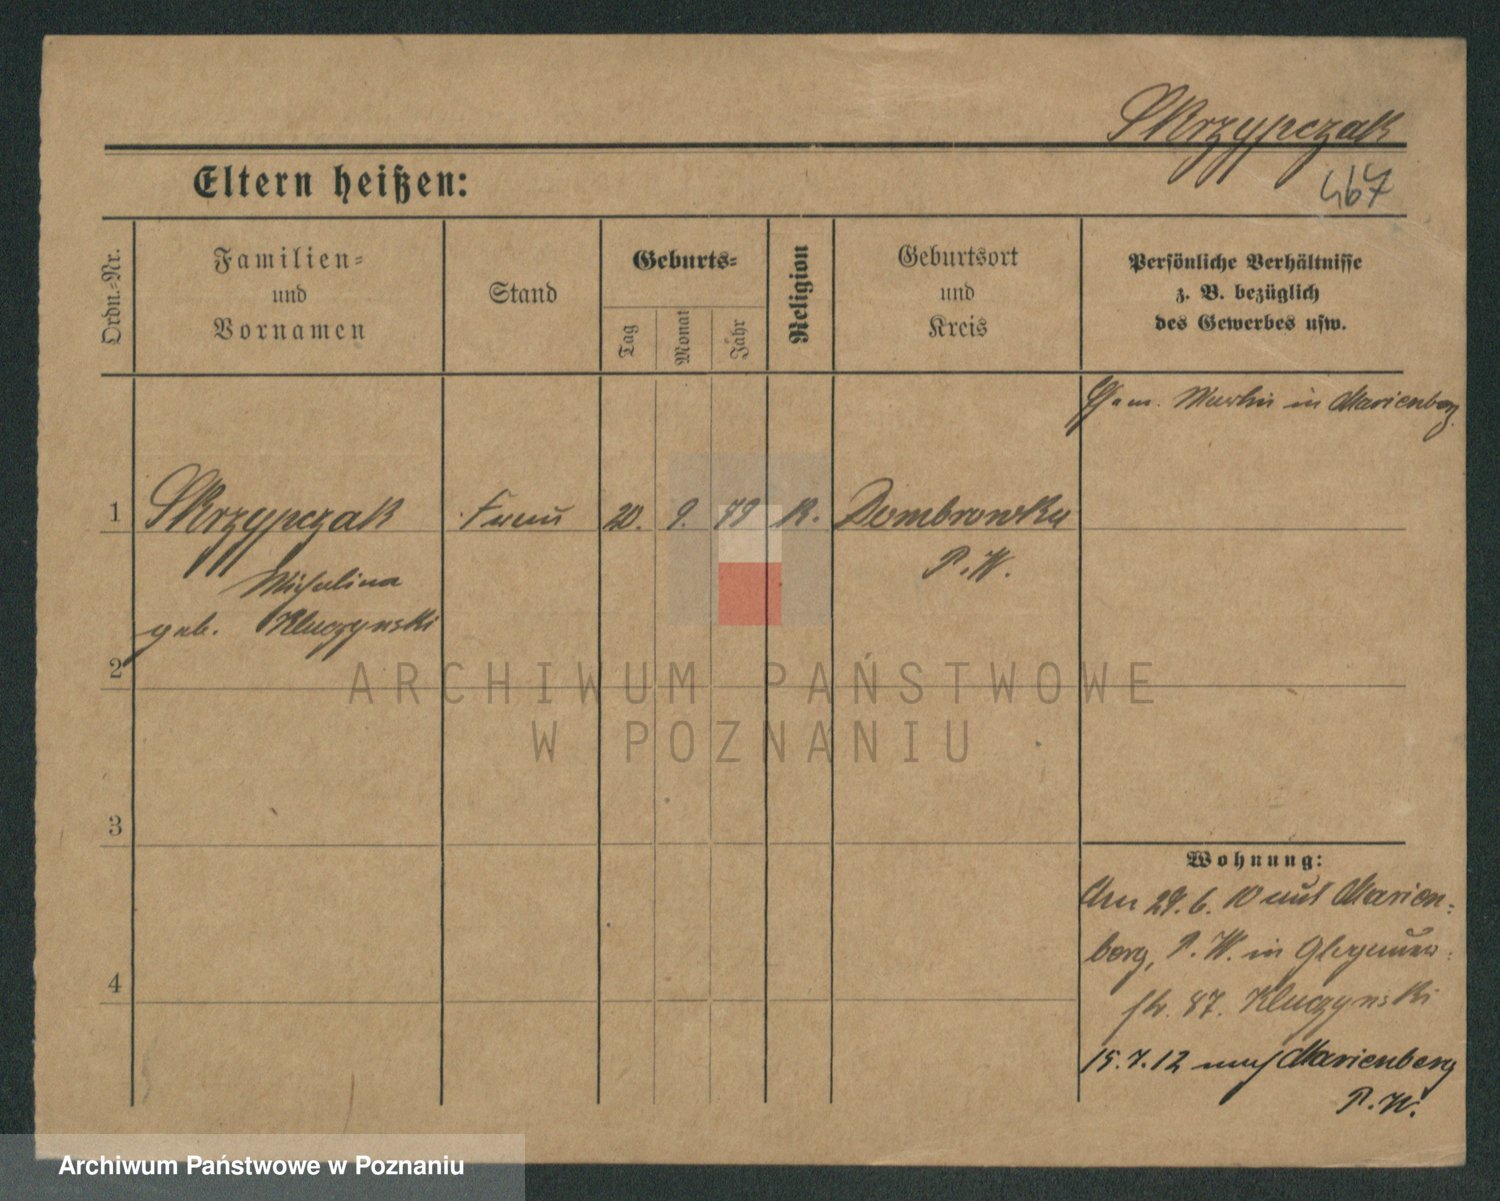 Skrzypczak
467
Eltern heißen:
Ordn.-Nr.
Familien-
und
Vornamen
Stand
Geburts-
Tag
Monat
Jahr
Religion
Geburtsort
und
Kreis
Persönliche Verhältnisse
z. B. bezüglich
des Gewerbes usw.
in Marienberg
1 Skrzypczak Frau 20. 9. 79 K. Dombrowka
P. W.
Michalina
geb. Kluczynski
2
ARCHIWUM PAŃSTWOWE
W POZNANIU
3
Wohnung:
Am 29. 6. 10 aus Marien-
berg, P. W. in Glogauer-
str. 87. Kluczynski
4
15. 7. 12 nach Marienberg
P. W.
Archiwum Państwowe w Poznaniu